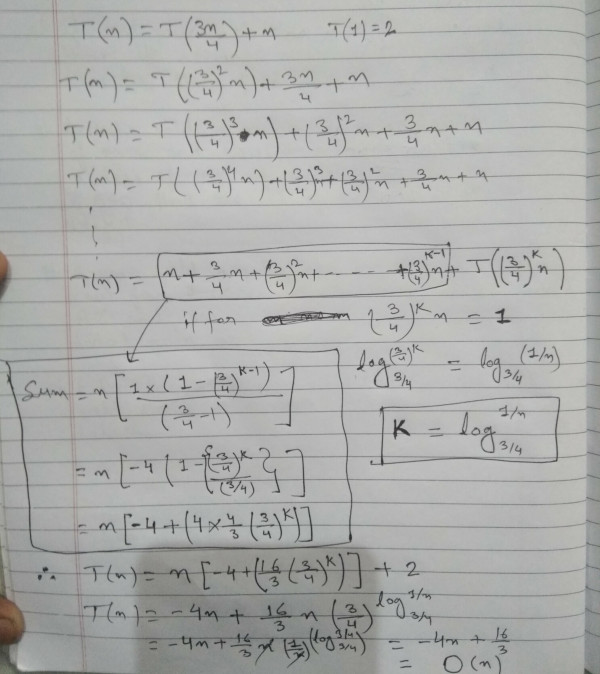 T(n) = T(3n/4) + n    T(1) = 2
T(n) = T((3/4)^2 n) + 3n/4 + n
T(n) = T((3/4)^3 n) + (3/4)^2 n + 3/4 n + n
T(n) = T((3/4)^4 n) + (3/4)^3 n + (3/4)^2 n + 3/4 n + n
T(n) = n + 3/4 n + (3/4)^2 n + ----- + (3/4)^(K-1) n + T((3/4)^K n)
if for (3/4)^K n = 1
log_(3/4) (3/4)^K = log_(3/4) (1/n)
K = log_(3/4) 1/n
Sum = n [ 1 × (1 - (3/4)^(K-1)) / (3/4 - 1) ]
= n [ -4 (1 - {(3/4)^K / (3/4)} ]
= n [ -4 + (4 × 4/3 (3/4)^K) ]
∴ T(n) = n [ -4 + (16/3 (3/4)^K) ] + 2
T(n) = -4n + 16/3 n (3/4)^(log_(3/4) 1/n)
= -4n + 16/3 n (1/n)^(log_(3/4) 3/4) = -4n + 16/3
= O(n)